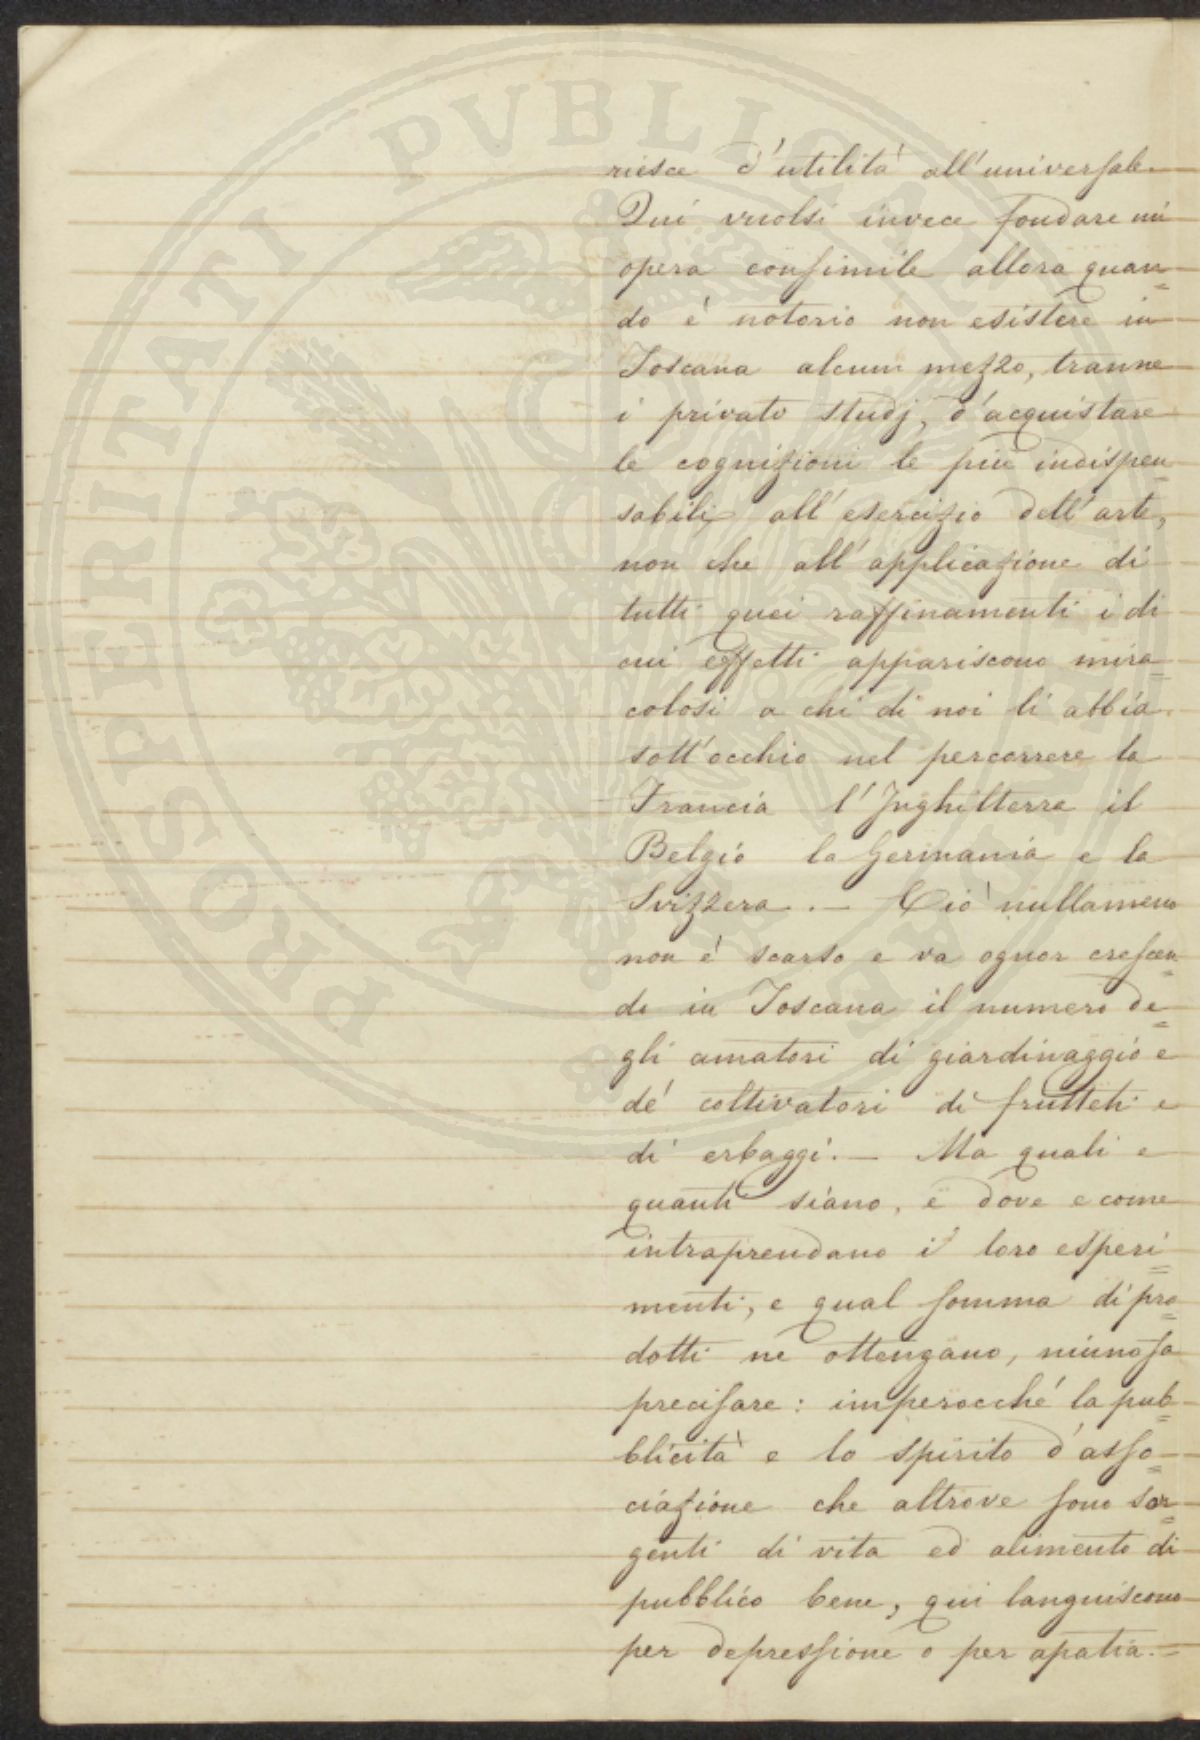 PROSPERITATI PVBLICAE AVGENDAE
riesce d'utilità all'universale.
Qui vuolsi invece fondare un'
opera consimile allora quan=
do è notorio non esistere in
Toscana alcun mezzo, tranne
i privati studj, d'acquistare
le cognizioni le più indispen
sabili all'esercizio dell'arte,
non che all'applicazione di
tutti quei raffinamenti i di
cui effetti appariscono mira=
colosi a chi di noi li abbia
sott'occhio nel percorrere la
Francia l'Inghilterra il
Belgio la Germania e la
Svizzera. — Ciò nullameno
non è scarso e va ognor crescen
do in Toscana il numero de=
gli amatori di giardinaggio e
de' coltivatori di frutteti e
di erbaggi. — Ma quali e
quanti siano, e dove e come
intraprendano i loro esperi=
menti, e qual somma di pro=
dotti ne ottengano, niuno sa
precisare: imperocché la pub=
blicità e lo spirito d'asso=
ciazione che altrove sono sor=
genti di vita ed alimento di
pubblico bene, qui languiscono
per depressione o per apatia. =